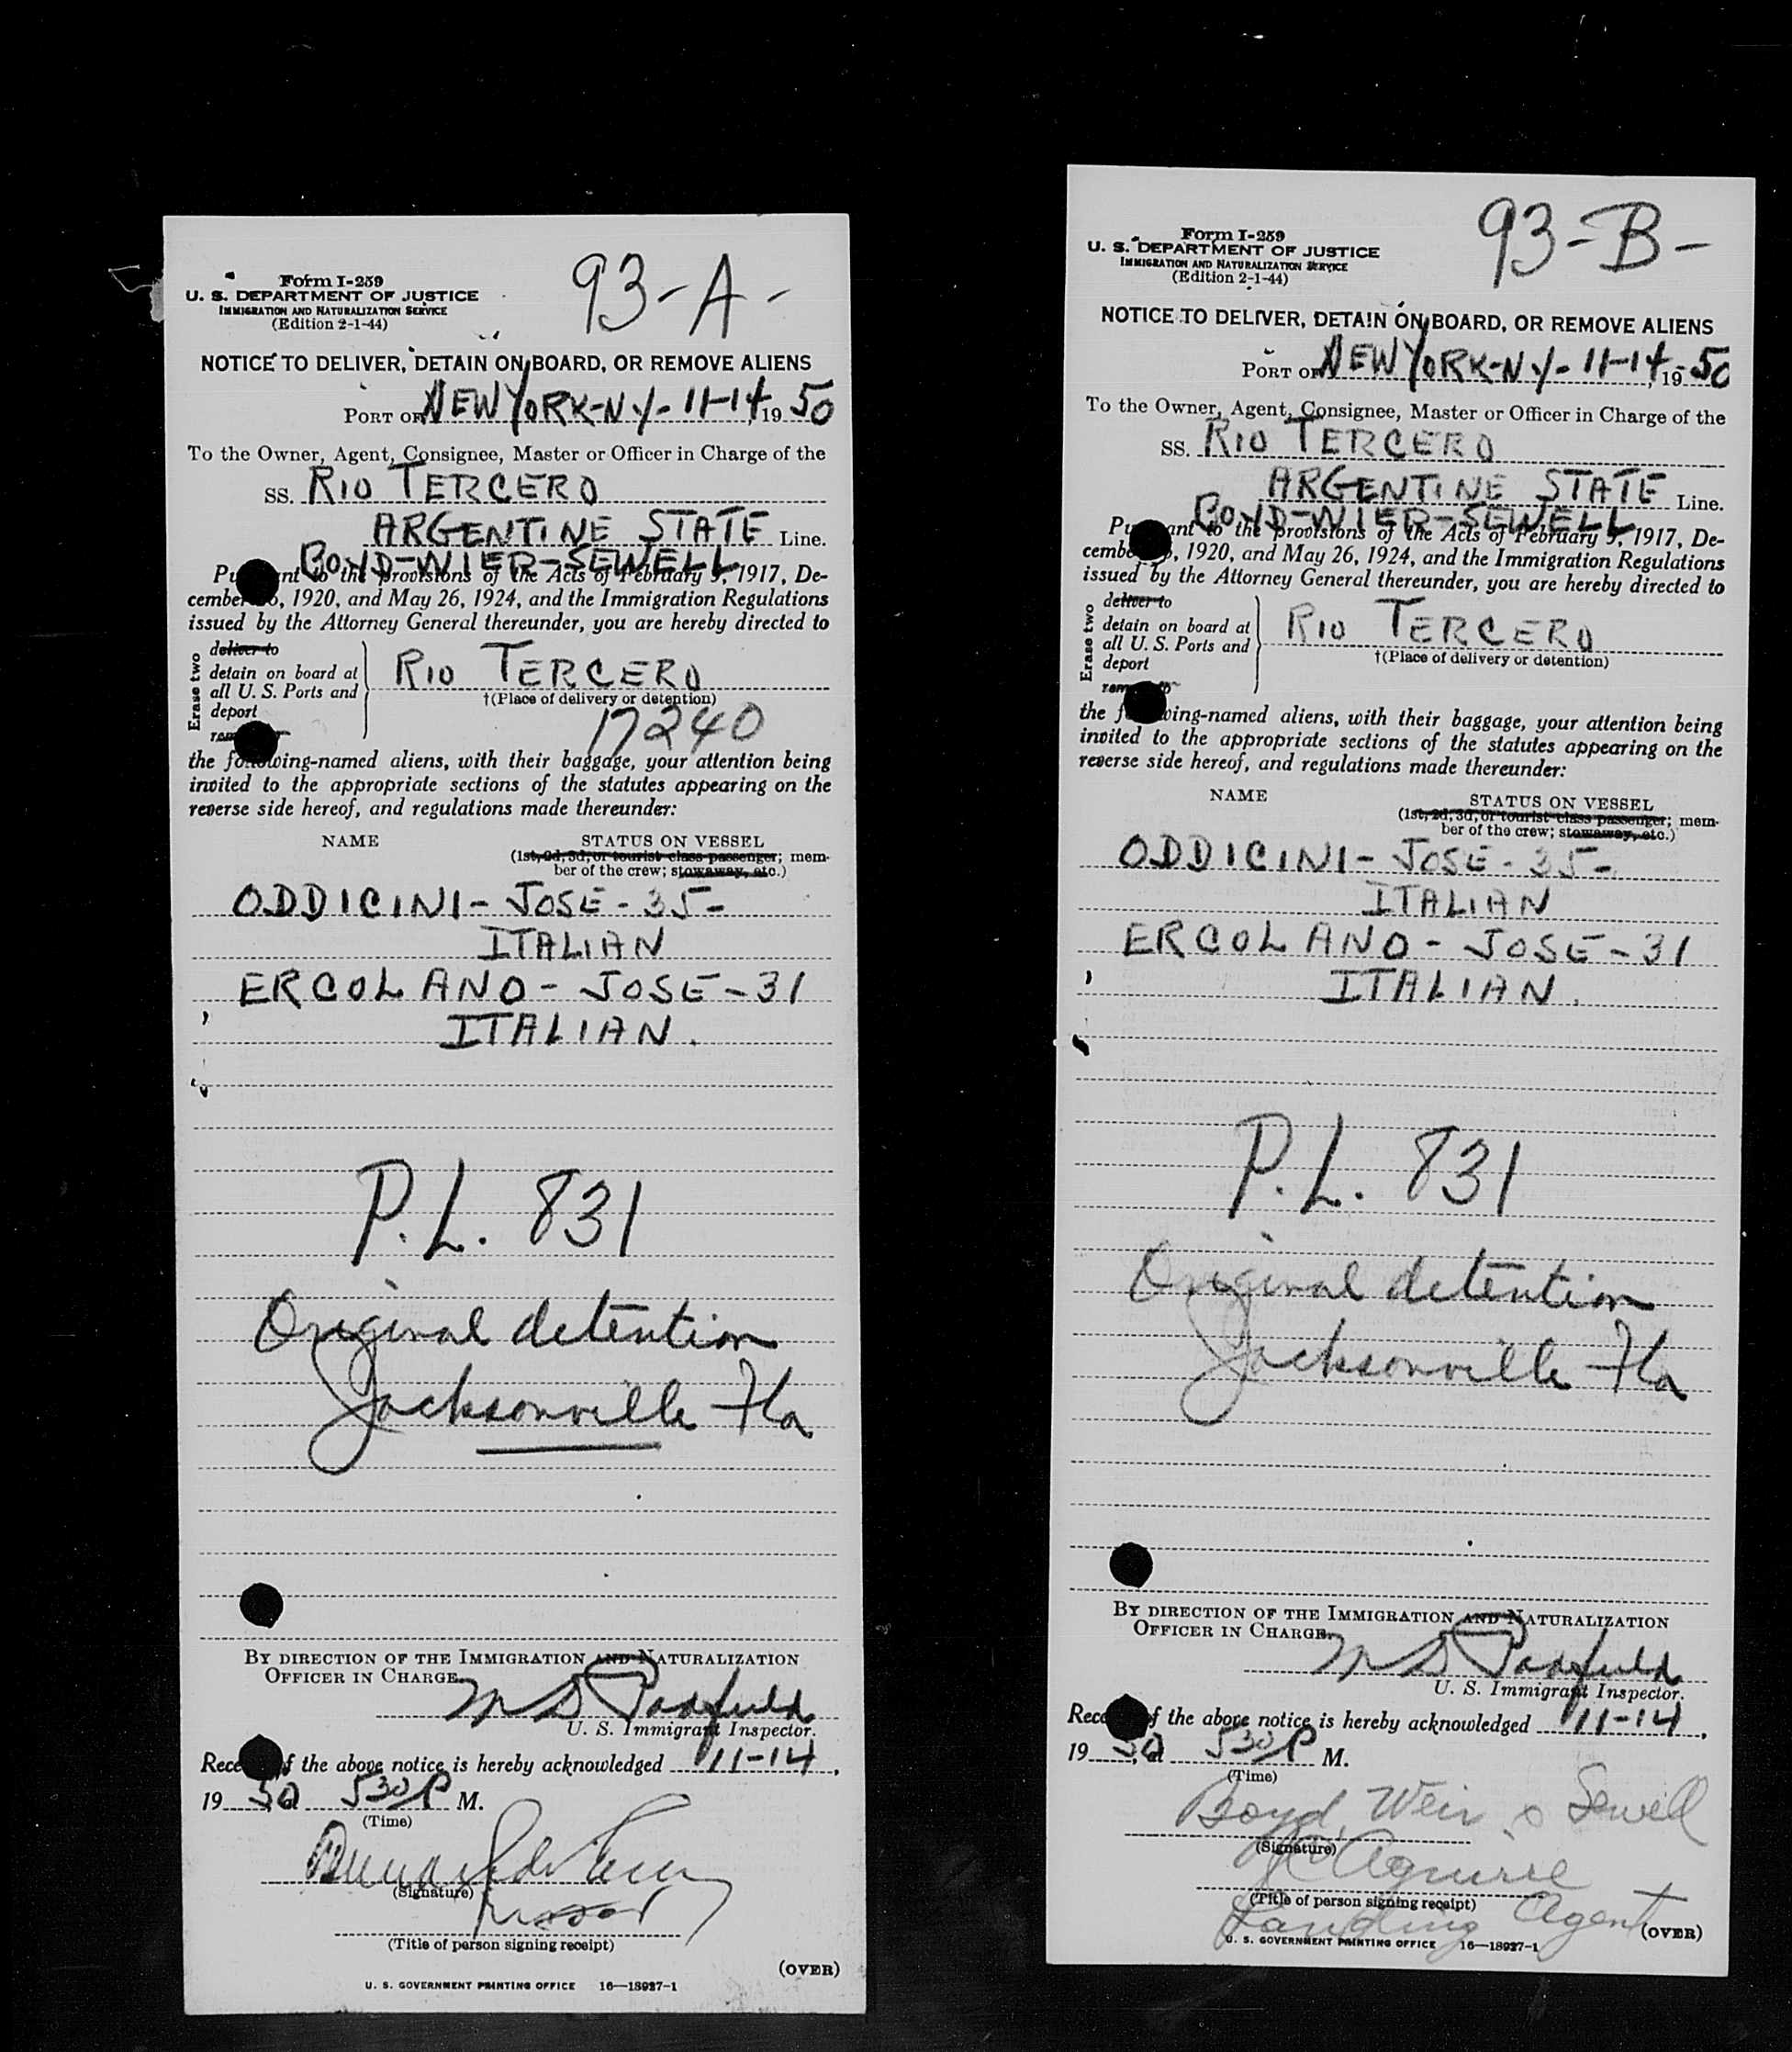 Form I-259
U. S. DEPARTMENT OF JUSTICE
IMMIGRATION AND NATURALIZATION SERVICE
(Edition 2-1-44)
93-A-
NOTICE TO DELIVER, DETAIN ON BOARD, OR REMOVE ALIENS
PORT OF NEW YORK-N.Y- 11-14, 19 50
To the Owner, Agent, Consignee, Master or Officer in Charge of the
SS. RIO TERCERO
ARGENTINE STATE Line.
BOYD-WIER-SEWELL
to the provisions of the Acts of February 5, 1917, De-
cember 1920, and May 26, 1924, and the Immigration Regulations
issued by the Attorney General thereunder, you are hereby directed to
Erase two
deliver to
detain on board at
all U. S. Ports and
deport
RIO TERCERO
†(Place of delivery or detention)
17240
the following-named aliens, with their baggage, your attention being
invited to the appropriate sections of the statutes appearing on the
reverse side hereof, and regulations made thereunder:
NAME
STATUS ON VESSEL
(1st, 2d, 3d, or tourist class passenger; mem-
ber of the crew; stowaway, etc.)
ODDICINI- JOSE - 35-
ITALIAN
ERCOLANO- JOSE-31
ITALIAN.
P.L. 831
Original detention
Jacksonville Fla
BY DIRECTION OF THE IMMIGRATION AND NATURALIZATION
OFFICER IN CHARGE.
M D Padfield
U. S. Immigrant Inspector.
of the above notice is hereby acknowledged 11-14,
19 50 530 P M.
(Time)
(Signature)
(Title of person signing receipt)
(OVER)
U. S. GOVERNMENT PRINTING OFFICE 16—18927-1
Form I-259
U. S. DEPARTMENT OF JUSTICE
IMMIGRATION AND NATURALIZATION SERVICE
(Edition 2-1-44)
93-B-
NOTICE TO DELIVER, DETAIN ON BOARD, OR REMOVE ALIENS
PORT OF NEW YORK-N.Y- 11-14, 19 50
To the Owner, Agent, Consignee, Master or Officer in Charge of the
SS. RIO TERCERO
ARGENTINE STATE Line.
BOYD-WIER-SEWELL
to the provisions of the Acts of February 5, 1917, De-
cember 1920, and May 26, 1924, and the Immigration Regulations
issued by the Attorney General thereunder, you are hereby directed to
Erase two
deliver to
detain on board at
all U. S. Ports and
deport
RIO TERCERO
†(Place of delivery or detention)
the following-named aliens, with their baggage, your attention being
invited to the appropriate sections of the statutes appearing on the
reverse side hereof, and regulations made thereunder:
NAME
STATUS ON VESSEL
(1st, 2d, 3d, or tourist class passenger; mem-
ber of the crew; stowaway, etc.)
ODDICINI- JOSE - 35-
ITALIAN
ERCOLANO- JOSE-31
ITALIAN.
P.L. 831
Original detention
Jacksonville Fla
BY DIRECTION OF THE IMMIGRATION AND NATURALIZATION
OFFICER IN CHARGE.
M D Padfield
U. S. Immigrant Inspector.
of the above notice is hereby acknowledged 11-14,
19 50 530 P M.
(Time)
Boyd, Weir & Sewell
(Signature)
Aguirre
(Title of person signing receipt)
Landing Agent
(OVER)
U. S. GOVERNMENT PRINTING OFFICE 16—18927-1